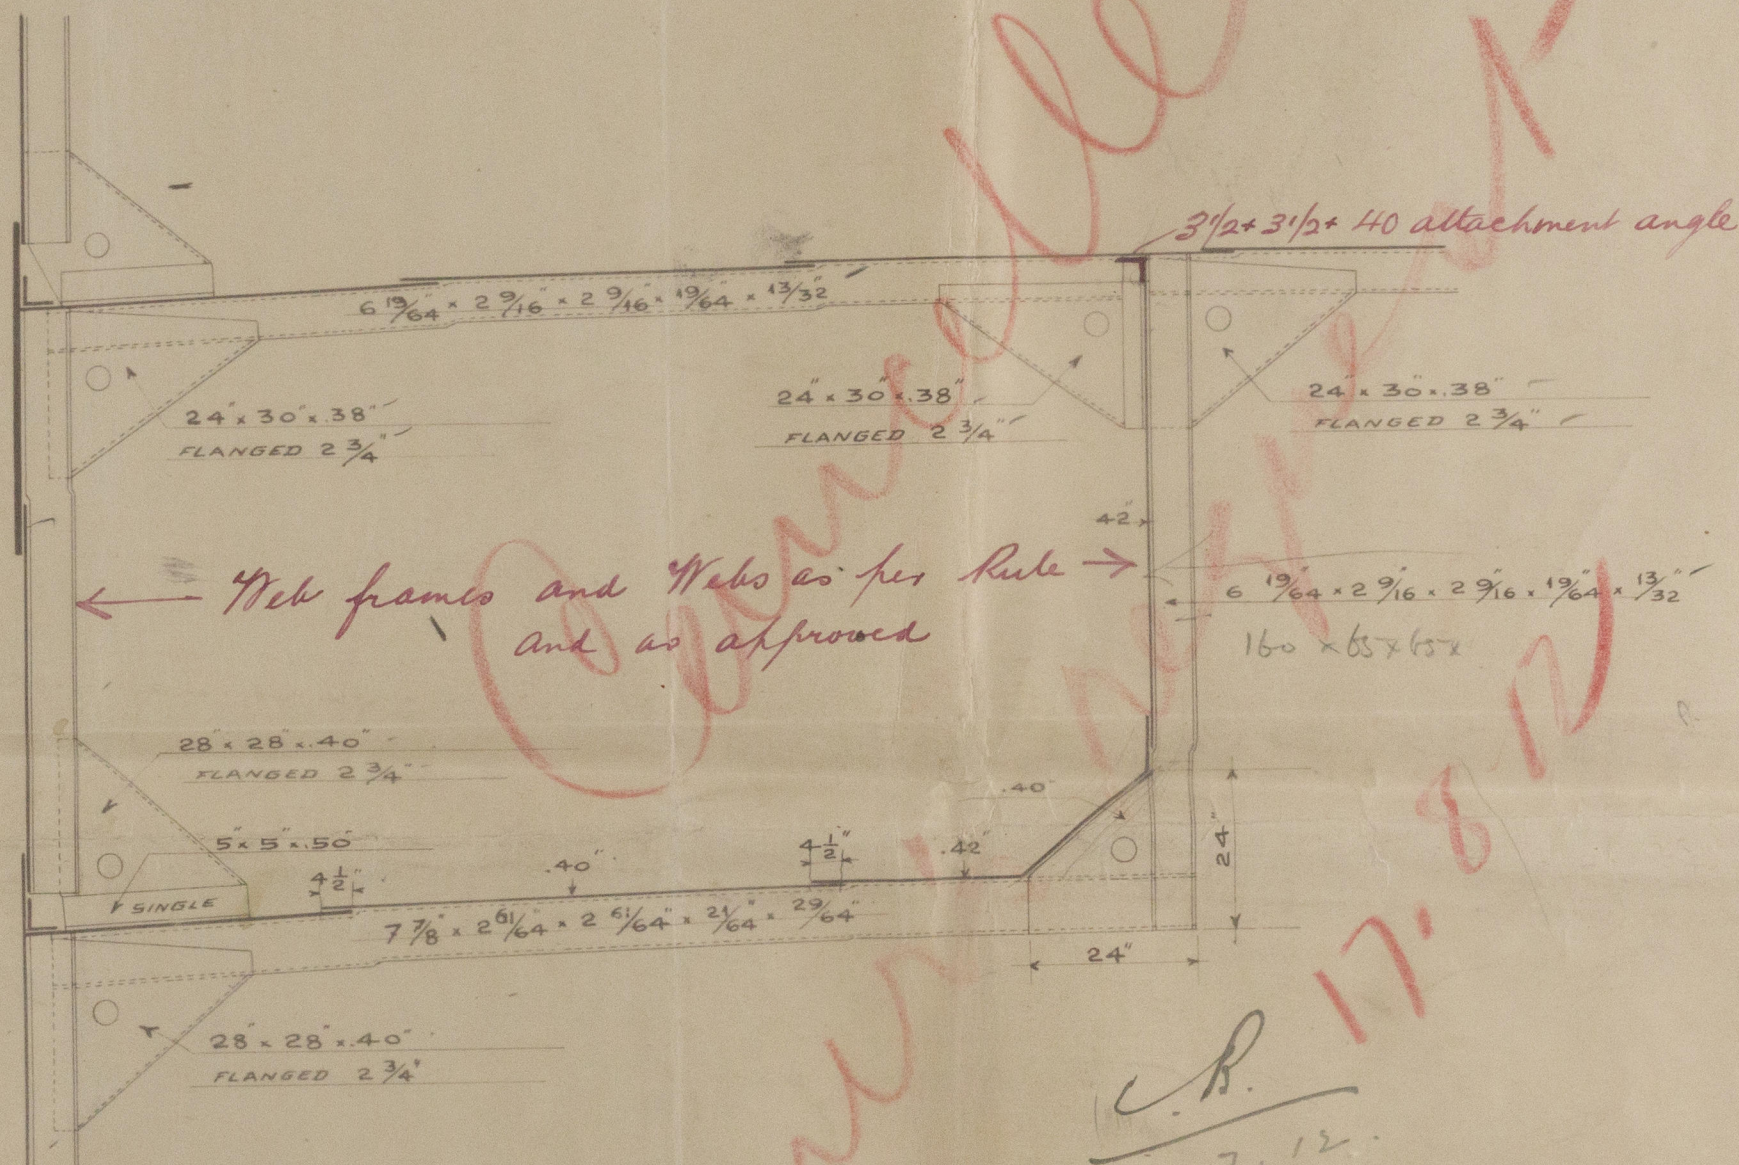 3 1/2 + 3 1/2 + 40 attachment angle
6 19/64" × 2 9/16" × 2 9/16" × 19/64" × 13/32"
24" × 30" × .38"
FLANGED 2 3/4"
24" × 30" × .38"
FLANGED 2 3/4"
24" × 30" × .38"
FLANGED 2 3/4"
42"
Web frames and Webs as per Rule
and as approved
6 19/64" × 2 9/16" × 2 9/16" × 19/64" × 13/32"
160 × 65 × 65 ×
28" × 28" × .40"
FLANGED 2 3/4"
.40"
5" × 5" × .50"
4 1/2"
.40"
4 1/2"
.42"
24"
SINGLE
7 7/8" × 2 61/64" × 2 61/64" × 21/64" × 29/64"
24"
28" × 28" × .40"
FLANGED 2 3/4"
Cancelled
17.8.12